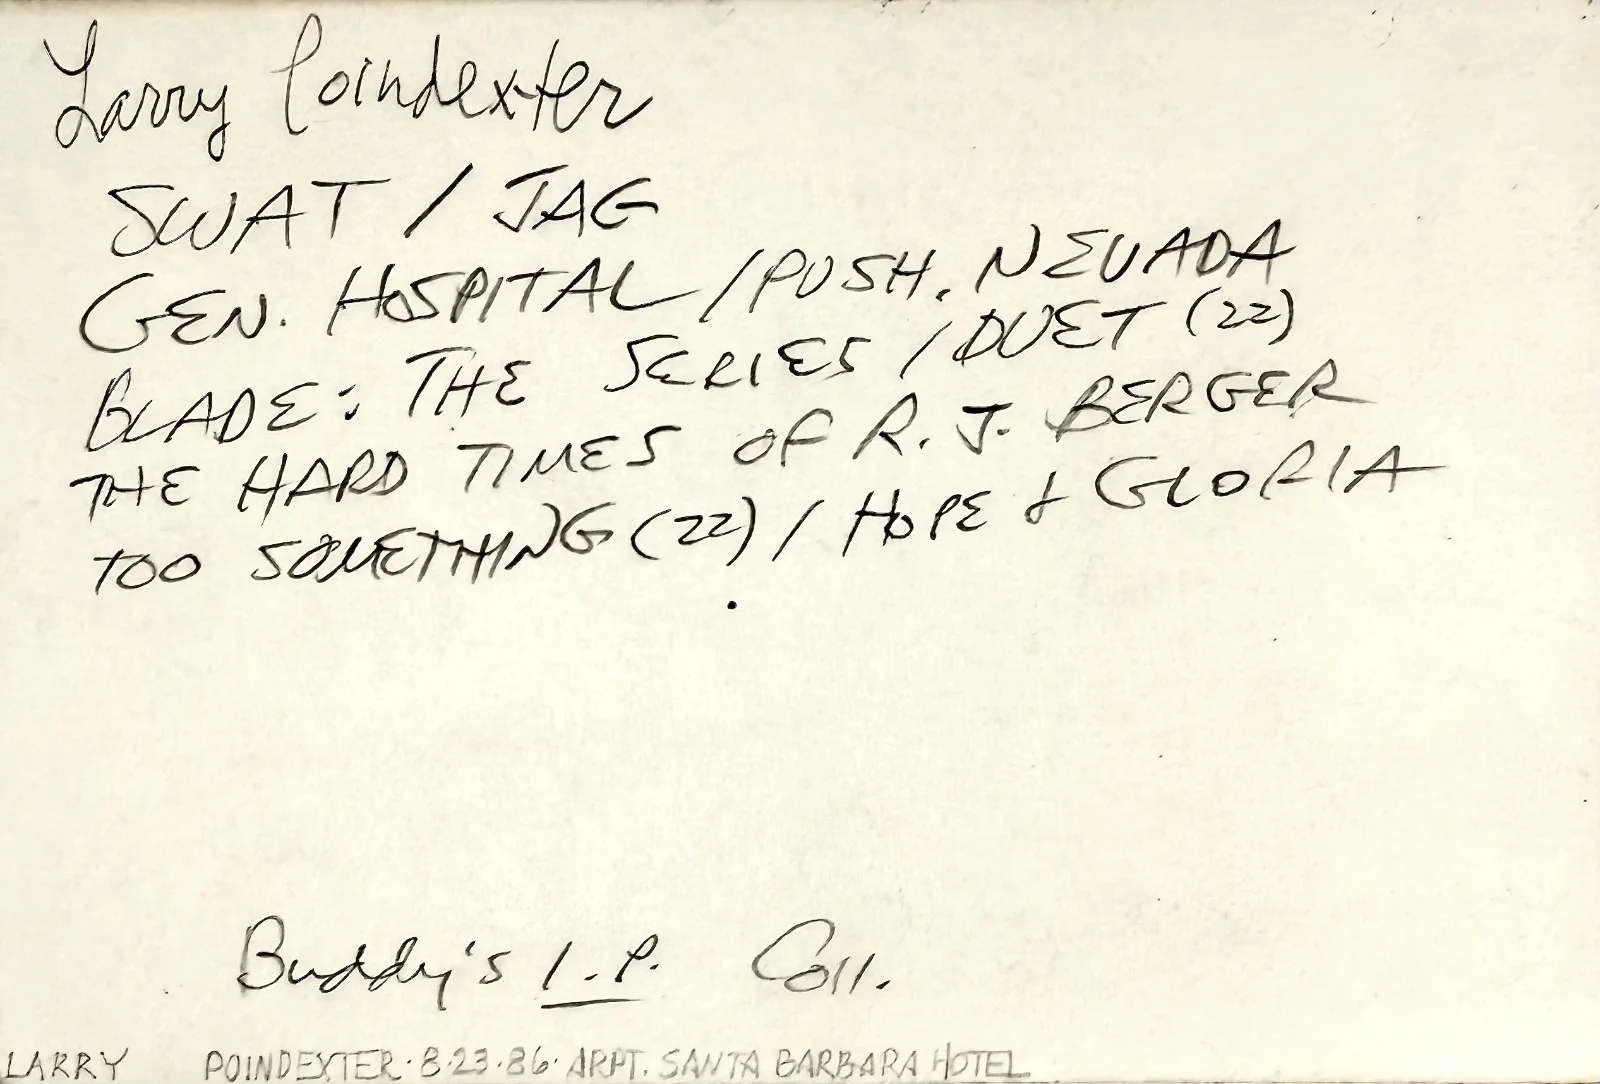 Larry Poindexter
SWAT / JAG
GEN. HOSPITAL / PUSH, NEVADA
BLADE: THE SERIES / DUET (22)
THE HARD TIMES OF R. J. BERGER
TOO SOMETHING (22) / HOPE & GLORIA
Buddy's I.P. Coll.
LARRY POINDEXTER · 8·23·86 · APPT. SANTA BARBARA HOTEL